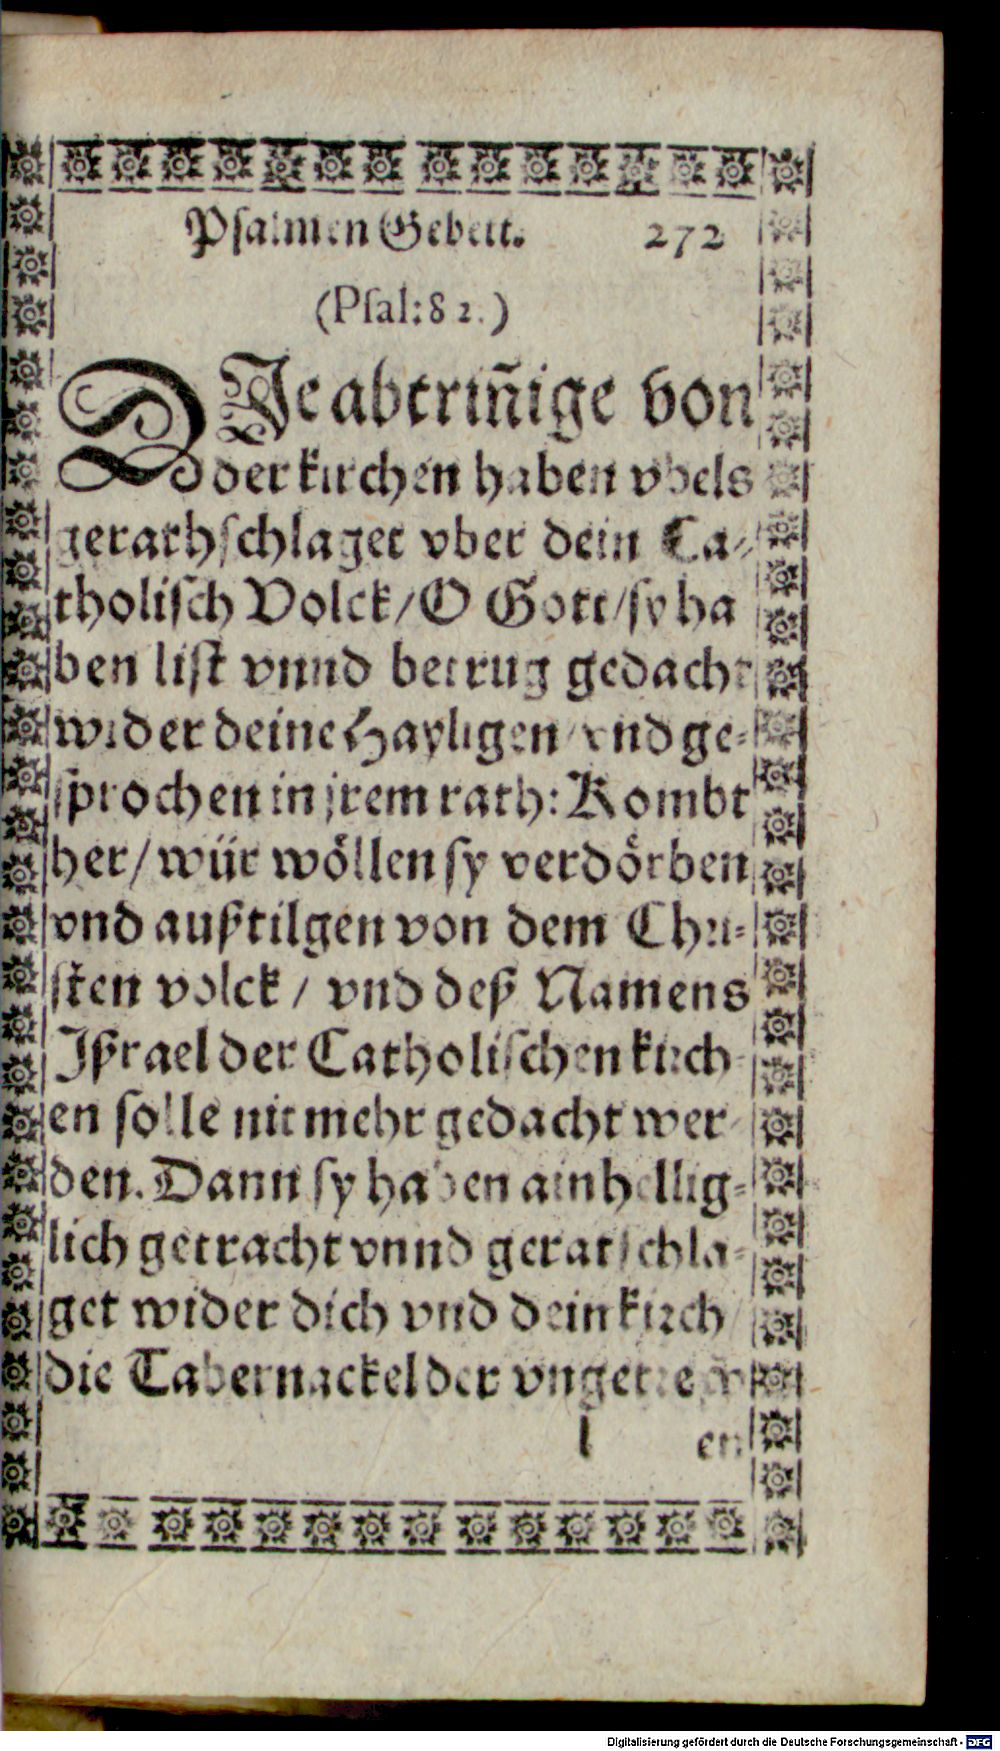 Psalmen Gebett. 272
(Psal: 82.)
DIe abtrin̄ige von
der kirchen haben vbels
gerathschlaget vber dein Ca-
tholisch Volck / O Gott / sy ha
ben list vnnd betrug gedacht
wider deine Hayligen / vnd ge-
sprochen in jrem rath: Kombt
her / wür wöllen sy verdörben
vnd außtilgen von dem Chri-
sten volck / vnd deß Namens
Jßrael der Catholischen kirch-
en solle nit mehr gedacht wer-
den. Dann sy haben ainhellig-
lich getracht vnnd geratschla-
get wider dich vnd dein kirch /
die Tabernackel der
l en
Digitalisierung gefördert durch die Deutsche Forschungsgemeinschaft - DFG